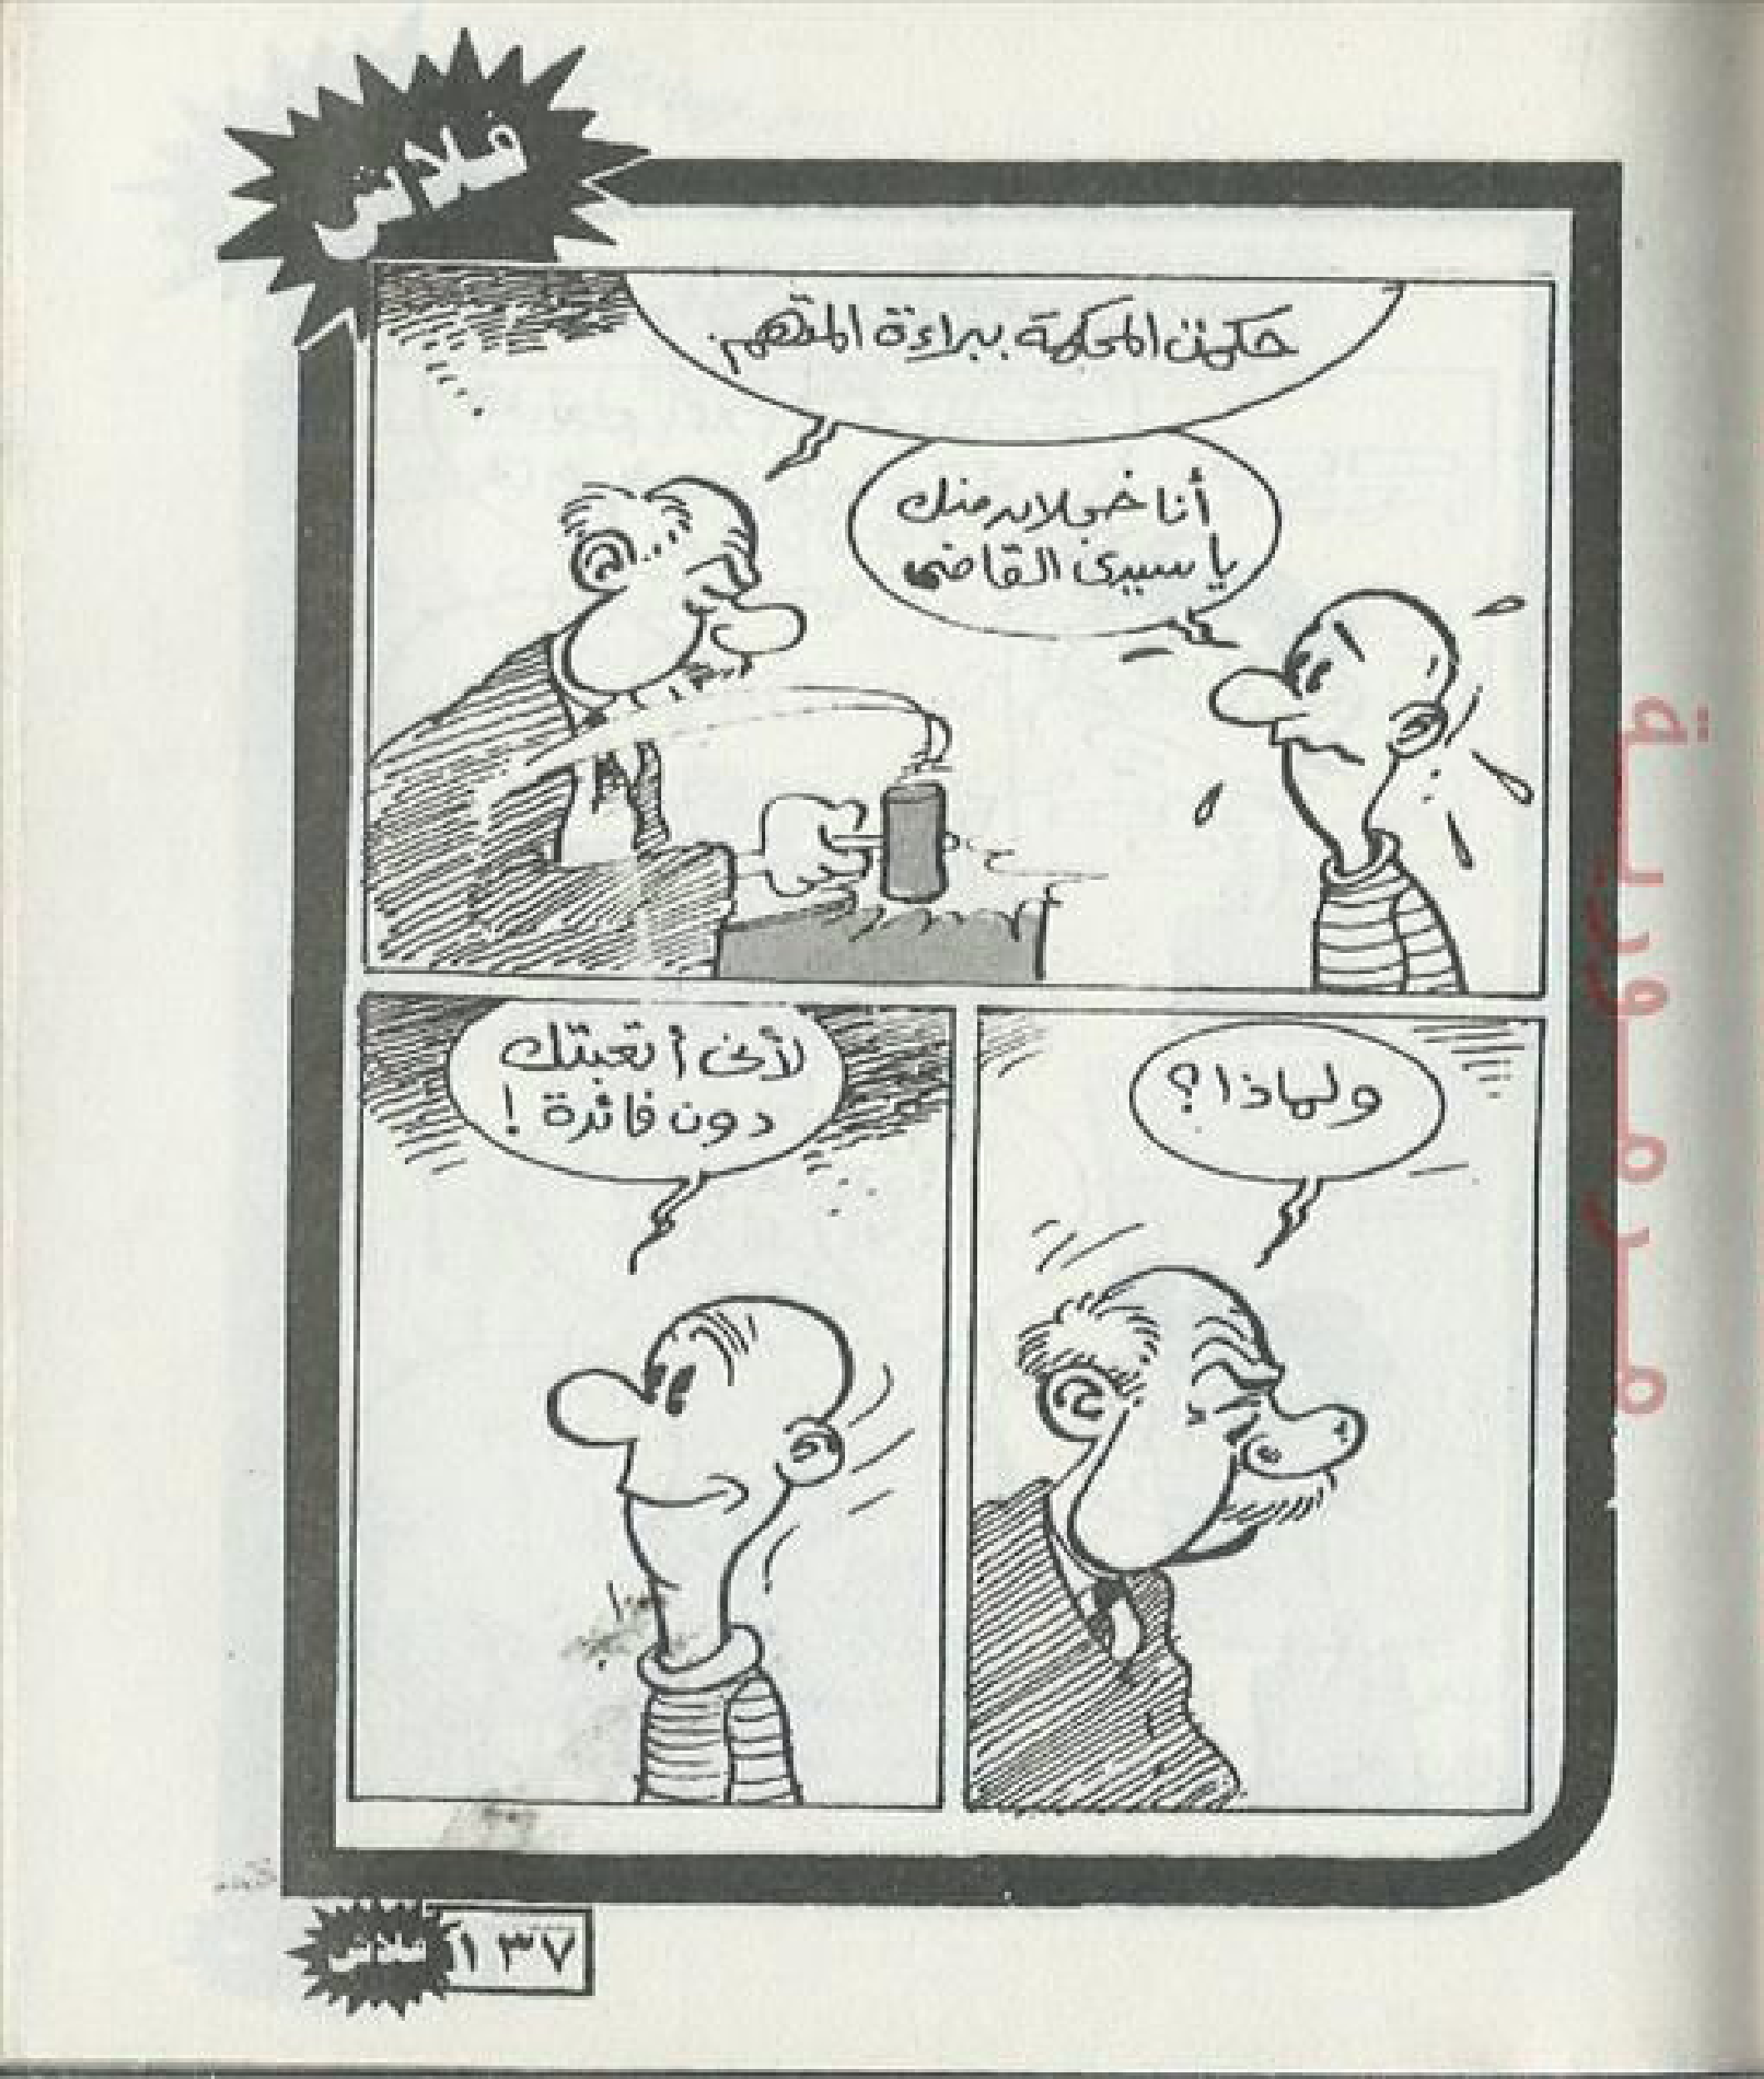 فلاش
حكمت المحكمة ببراءة المتهم.
أنا خجلان منك
يا سيدى القاضى
ولماذا؟
لأنى أتعبتك
دون فائدة!
فلاش
١٣٧
مرمورية